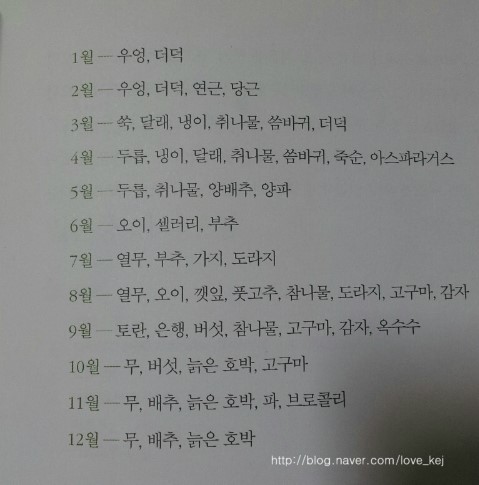 1월 — 우엉, 더덕
2월 — 우엉, 더덕, 연근, 당근
3월 — 쑥, 달래, 냉이, 취나물, 씀바귀, 더덕
4월 — 두릅, 냉이, 달래, 취나물, 씀바귀, 죽순, 아스파라거스
5월 — 두릅, 취나물, 양배추, 양파
6월 — 오이, 셀러리, 부추
7월 — 열무, 부추, 가지, 도라지
8월 — 열무, 오이, 깻잎, 풋고추, 참나물, 도라지, 고구마, 감자
9월 — 토란, 은행, 버섯, 참나물, 고구마, 감자, 옥수수
10월 — 무, 버섯, 늙은 호박, 고구마
11월 — 무, 배추, 늙은 호박, 파, 브로콜리
12월 — 무, 배추, 늙은 호박
http://blog.naver.com/love_kej